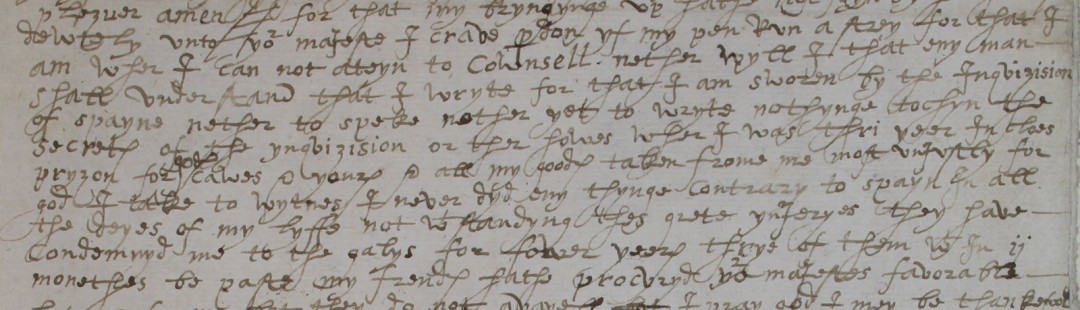 p'sever amen for that my bryngynge vp hathe not
dewtely vnto yor majeste I crave pdon yf my pen Rvn a strey for that I
am wher I can not ateyn to Cownsell. nether wyll I that eny man
shall vnderstand that I wryte for that I am sworen by the Inqvizision
of spayne nether to speke nother yet to wryte nothynge tochyn the
secretes of the ynqvizision or ther howes wher I was thri yeer In cloes
pryzon for gods cawes & yours & all my goods taken frome me most vnjvstly for
god I take to wytnes I never dyd eny thynge Contrary to spayn In all
the deyes of my lyffe not wtstandyng thes grete ynjeryes they have
Condemnyd me to the galys for fower yeers thrye of them wt In ij
monethes be paste my frends hathe procvryd yor majestes favorable
they do not I pray god I mey be thankefvll